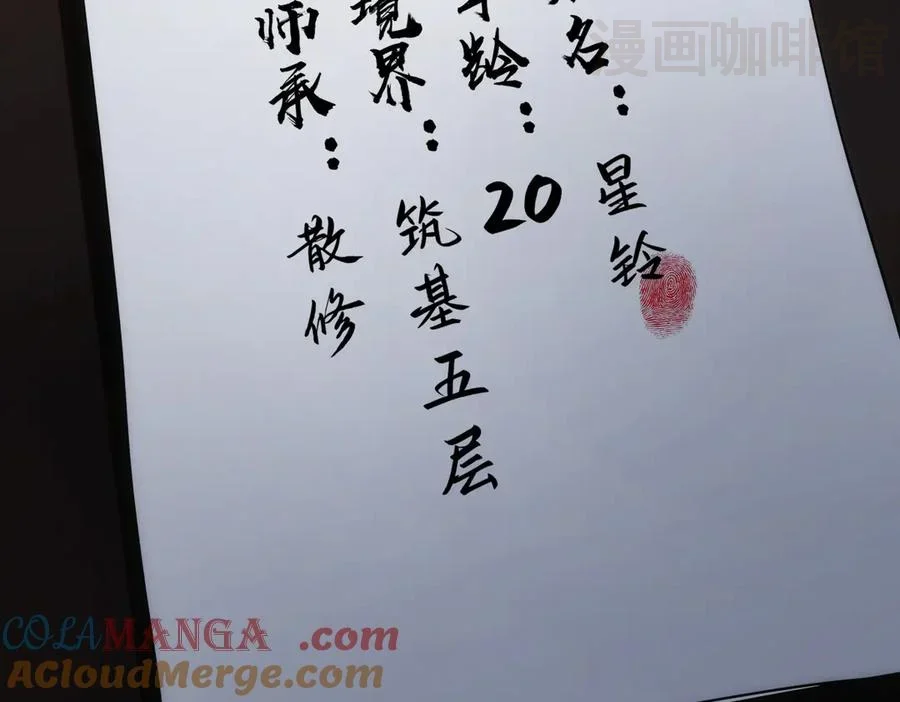 名：星铃
龄：20
境界：筑基五层
师承：散修
漫画咖啡馆
COLAMANGA.com
ACloudMerge.com